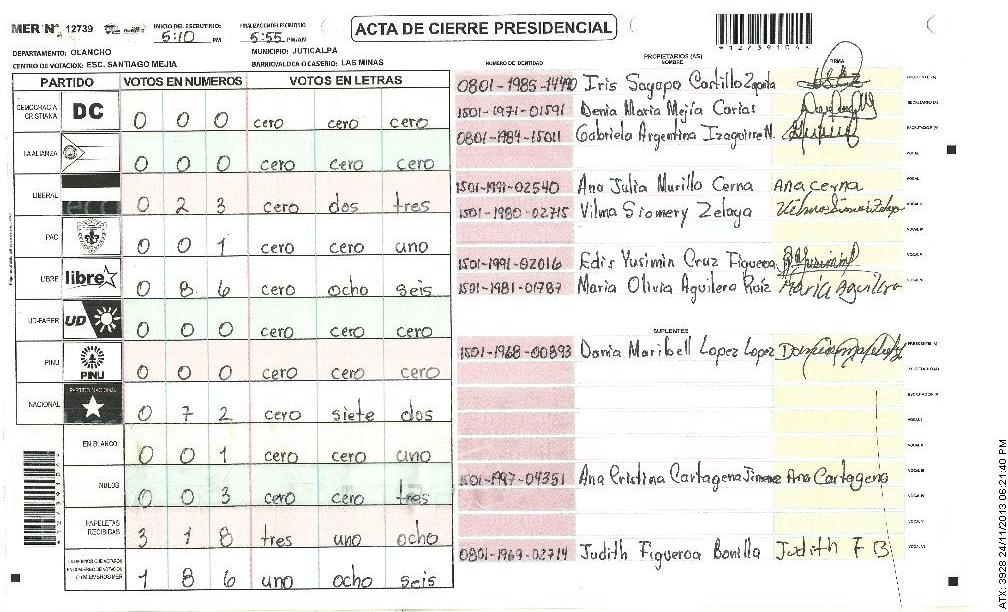 MER Nº 12739 INICIO DEL ESCRUTINIO: 5:10 PM FINALIZACION DEL ESCRUTINIO 5:55 PM/AM ACTA DE CIERRE PRESIDENCIAL
DEPARTAMENTO: OLANCHO MUNICIPIO: JUTICALPA
CENTRO DE VOTACION: ESC. SANTIAGO MEJIA BARRIO/ALDEA O CASERIO: LAS MINAS
PARTIDO VOTOS EN NUMEROS VOTOS EN LETRAS
DEMOCRACIA CRISTIANA DC 0 0 0 cero cero cero
LA ALIANZA 0 0 0 cero cero cero
LIBERAL 0 2 3 cero dos tres
PAC 0 0 1 cero cero uno
LIBRE libre 0 8 6 cero ocho seis
UD-FAPER UD 0 0 0 cero cero cero
PINU PINU 0 0 0 cero cero cero
NACIONAL PARTIDO NACIONAL 0 7 2 cero siete dos
EN BLANCO 0 0 1 cero cero uno
NULOS 0 0 3 cero cero tres
PAPELETAS RECIBIDAS 3 1 8 tres uno ocho
1 8 6 uno ocho seis
NUMERO DE IDENTIDAD PROPIETARIOS (AS) NOMBRE FIRMA
0801-1985-14490 Iris Sagapo Castillo Zapata
1501-1971-01591 Denia Maria Mejía Carias
0801-1984-15011 Gabriela Argentina Izaguirre N.
1501-1991-02540 Ana Julia Murillo Cerna Ana cerna
1501-1980-02715 Vilma Siomery Zelaya
1501-1991-02016 Edis Yusimin Cruz Figueroa
1501-1981-01787 Maria Olivia Aguilera Ruiz Maria Aguilera
SUPLENTES
1501-1968-00893 Dania Maribell Lopez Lopez
1501-1997-04351 Ana Cristina Cartagena Jimenez Ana Cartagena
0801-1969-02714 Judith Figueroa Bonilla Judith F B
ATX: 3928 24/11/2013 06:21:40 PM